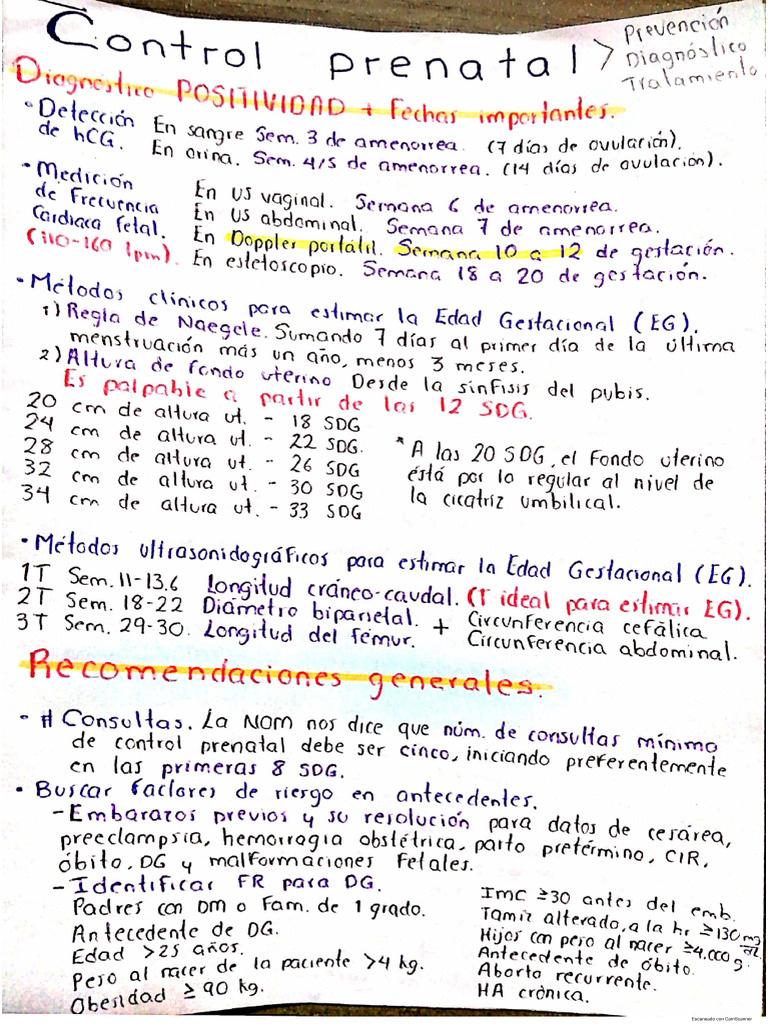 Control prenatal >
Prevención
Diagnóstico
Tratamiento
Diagnóstico POSITIVIDAD + Fechas importantes.
• Detección de hCG.
En sangre Sem. 3 de amenorrea. (7 días de ovulación).
En orina. Sem. 4/5 de amenorrea. (14 días de ovulación).
• Medición
de Frecuencia
Cardiaca fetal.
(110-160 lpm).
En US vaginal. Semana 6 de amenorrea.
En US abdominal. Semana 7 de amenorrea.
En Doppler portátil. Semana 10 a 12 de gestación.
En estetoscopio. Semana 18 a 20 de gestación.
• Métodos clínicos para estimar la Edad Gestacional (EG).
1) Regla de Naegele. Sumando 7 días al primer día de la última
menstruación más un año, menos 3 meses.
2) Altura de fondo uterino Desde la sínfisis del pubis.
Es palpable a partir de las 12 SDG.
20 cm de altura ut. - 18 SDG
24 cm de altura ut. - 22 SDG.
28 cm de altura ut. - 26 SDG
32 cm de altura ut. - 30 SDG
34 cm de altura ut. - 33 SDG
* A las 20 SDG, el fondo uterino
está por lo regular al nivel de
la cicatriz umbilical.
• Métodos ultrasonidográficos para estimar la Edad Gestacional (EG).
1T Sem. 11-13.6 Longitud cráneo-caudal. (T ideal para estimar EG).
2T Sem. 18-22 Diámetro biparietal.
3T Sem. 29-30. Longitud del fémur.
+ Circunferencia cefálica
Circunferencia abdominal.
Recomendaciones generales.
• # Consultas. La NOM nos dice que núm. de consultas mínimo
de control prenatal debe ser cinco, iniciando preferentemente
en las primeras 8 SDG.
• Buscar factores de riesgo en antecedentes.
- Embarazos previos y su resolución para datos de cesárea,
preeclampsia, hemorragia obstétrica, parto pretérmino, CIR,
óbito, DG y malformaciones fetales.
- Identificar FR para DG.
Padres con DM o Fam. de 1 grado.
Antecedente de DG.
Edad >25 años.
Peso al nacer de la paciente >4 kg.
Obesidad ≥ 90 kg.
IMC ≥30 antes del emb.
Tamiz alterado, a la hr ≥130 mg/dL
Hijos con peso al nacer ≥4.000 g.
Antecedente de óbito.
Aborto recurrente.
HA crónica.
Escaneado con CamScanner